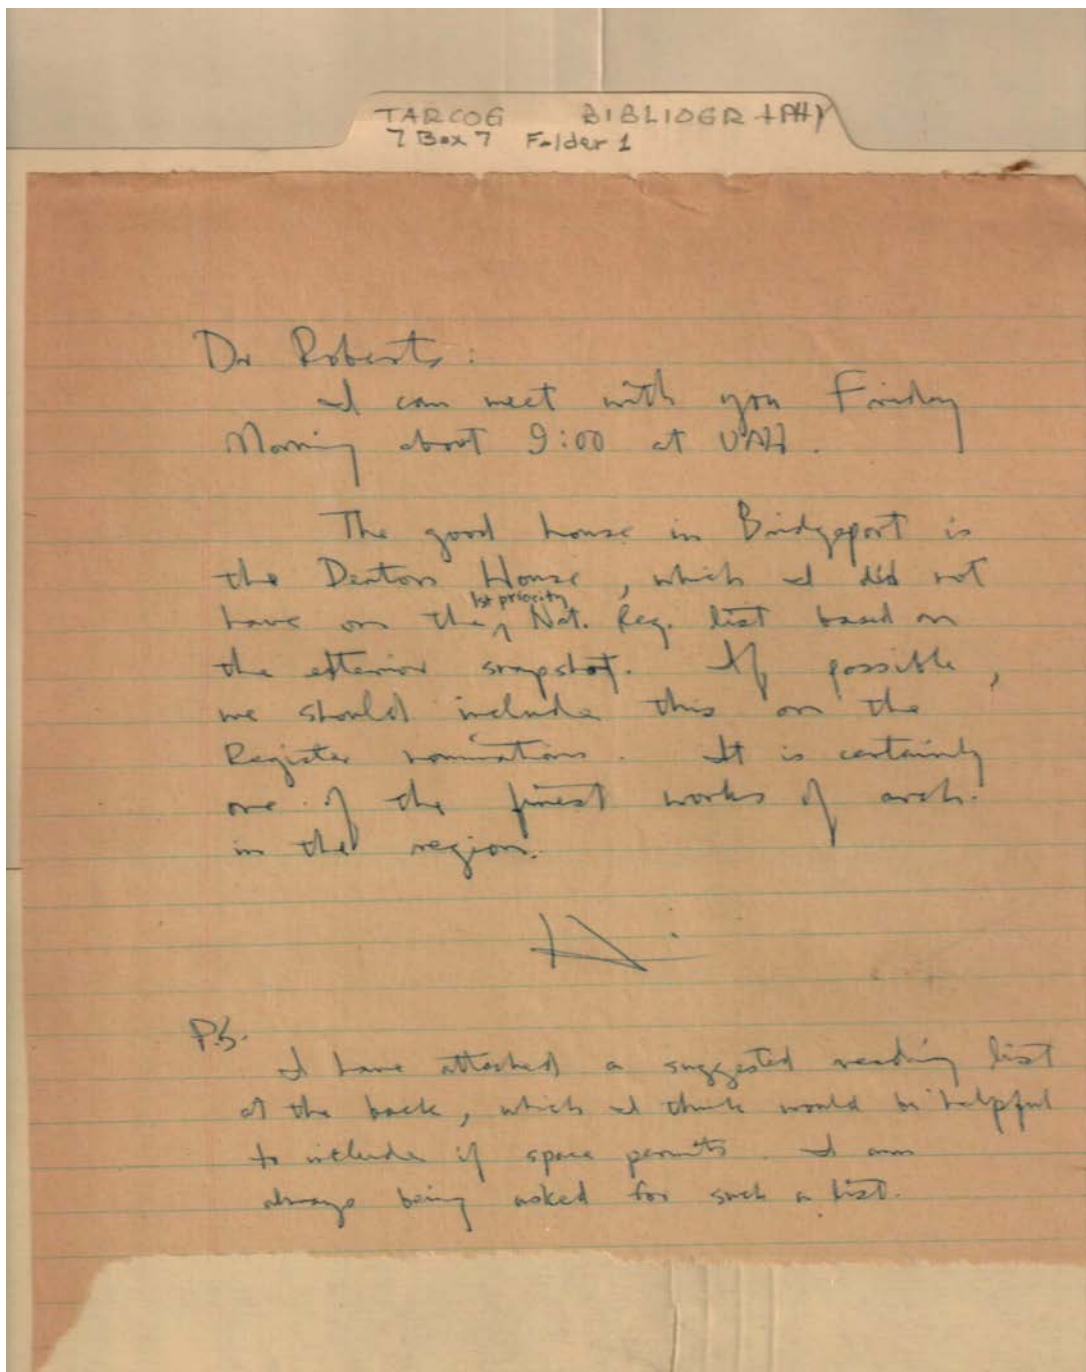 TARCOG BIBLIOGRAPHY
7 Box 7 Folder 1
Dr Roberts:
I can meet with you Friday
Morning about 9:00 at UAH.
The good house in Bridgeport is
the Denton House, which I did not
have on the 1st priority Nat. Reg. list based on
the exterior snapshot. If possible,
we should include this on the
Register nomination. It is certainly
one of the finest works of arch.
in the region.
P.S.
I have attached a suggested reading list
at the back, which I think would be helpful
to include if space permits. I am
always being asked for such a list.